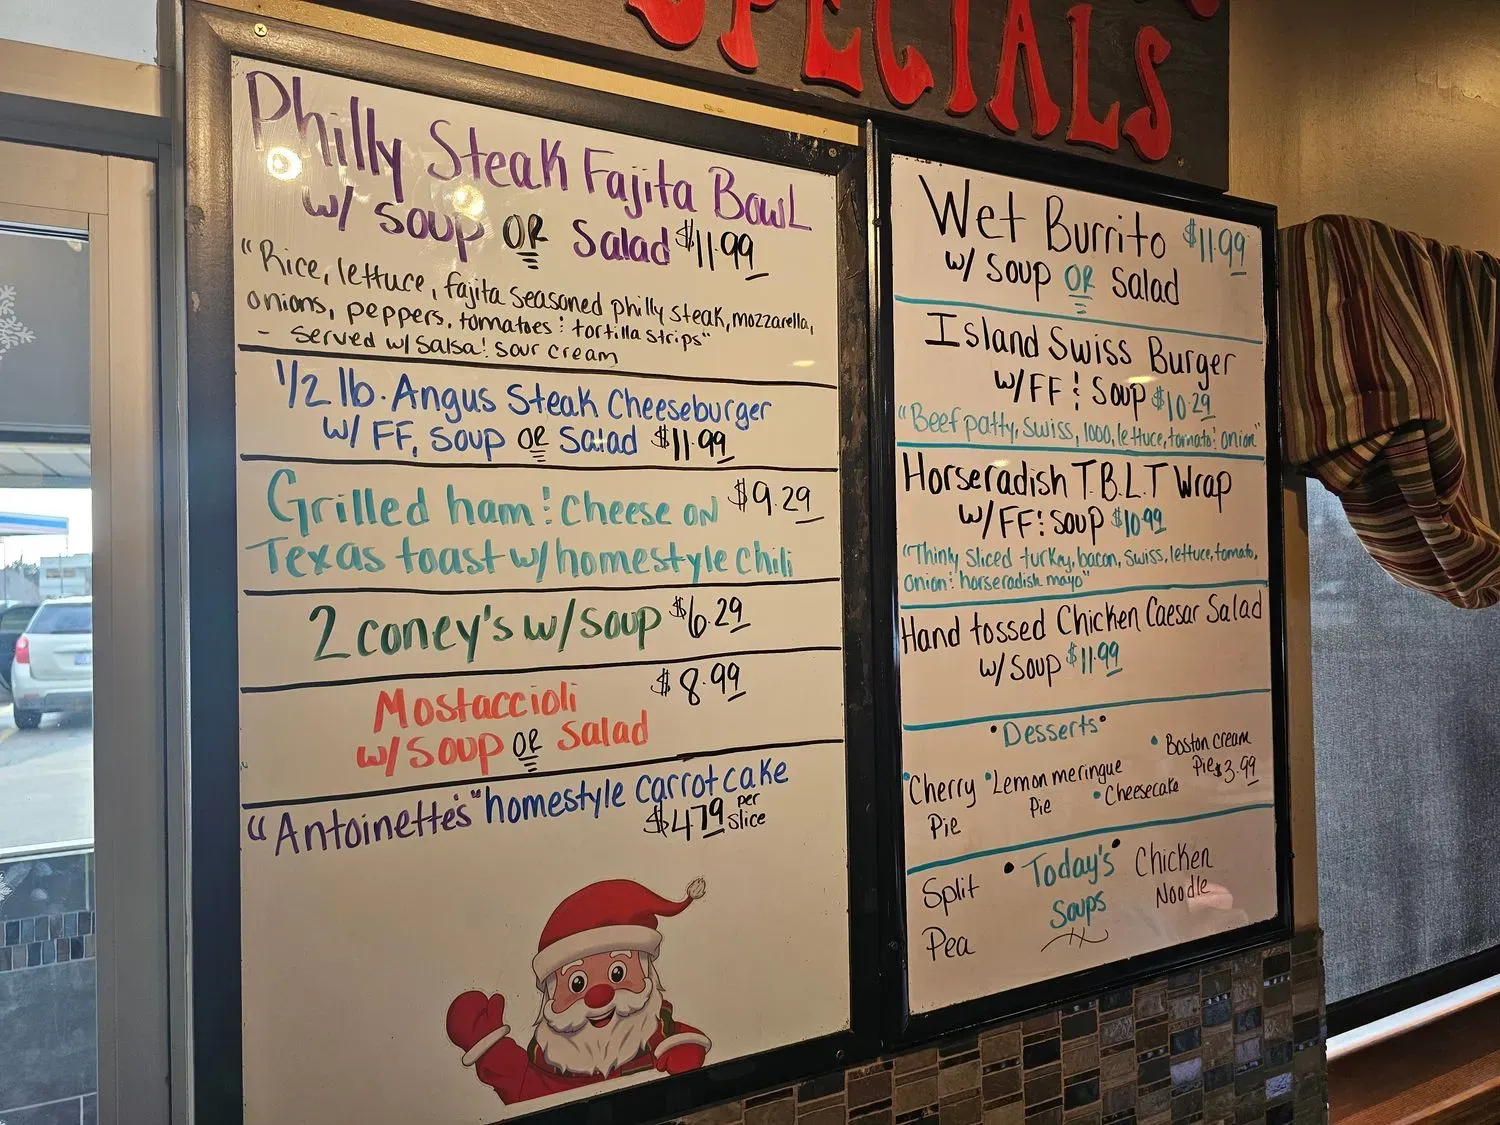 SPECIALS
Philly Steak Fajita Bowl
w/ soup OR Salad $11.99
"Rice, lettuce, fajita seasoned philly steak, mozzarella,
onions, peppers, tomatoes & tortilla strips"
- served w/ salsa & sour cream
1/2 lb. Angus Steak Cheeseburger
w/ FF, soup OR Salad $11.99
Grilled ham & Cheese on $9.29
Texas toast w/ homestyle chili
2 coney's w/ soup $6.29
Mostaccioli $8.99
w/ soup OR Salad
"Antoinette's" homestyle carrot cake
$4.79 per slice
Wet Burrito $11.99
w/ soup OR Salad
Island Swiss Burger
w/ FF & soup $10.29
"Beef patty, swiss, 1000, lettuce, tomato & onion"
Horseradish T.B.L.T Wrap
w/ FF & soup $10.99
"Thinly sliced turkey, bacon, swiss, lettuce, tomato,
onion & horseradish mayo"
Hand tossed Chicken Caesar Salad
w/ soup $11.99
• Desserts •
• Cherry Pie
• Lemon meringue Pie
• Cheesecake
• Boston cream Pie $3.99
• Today's • Soups
Split Pea
Chicken Noodle